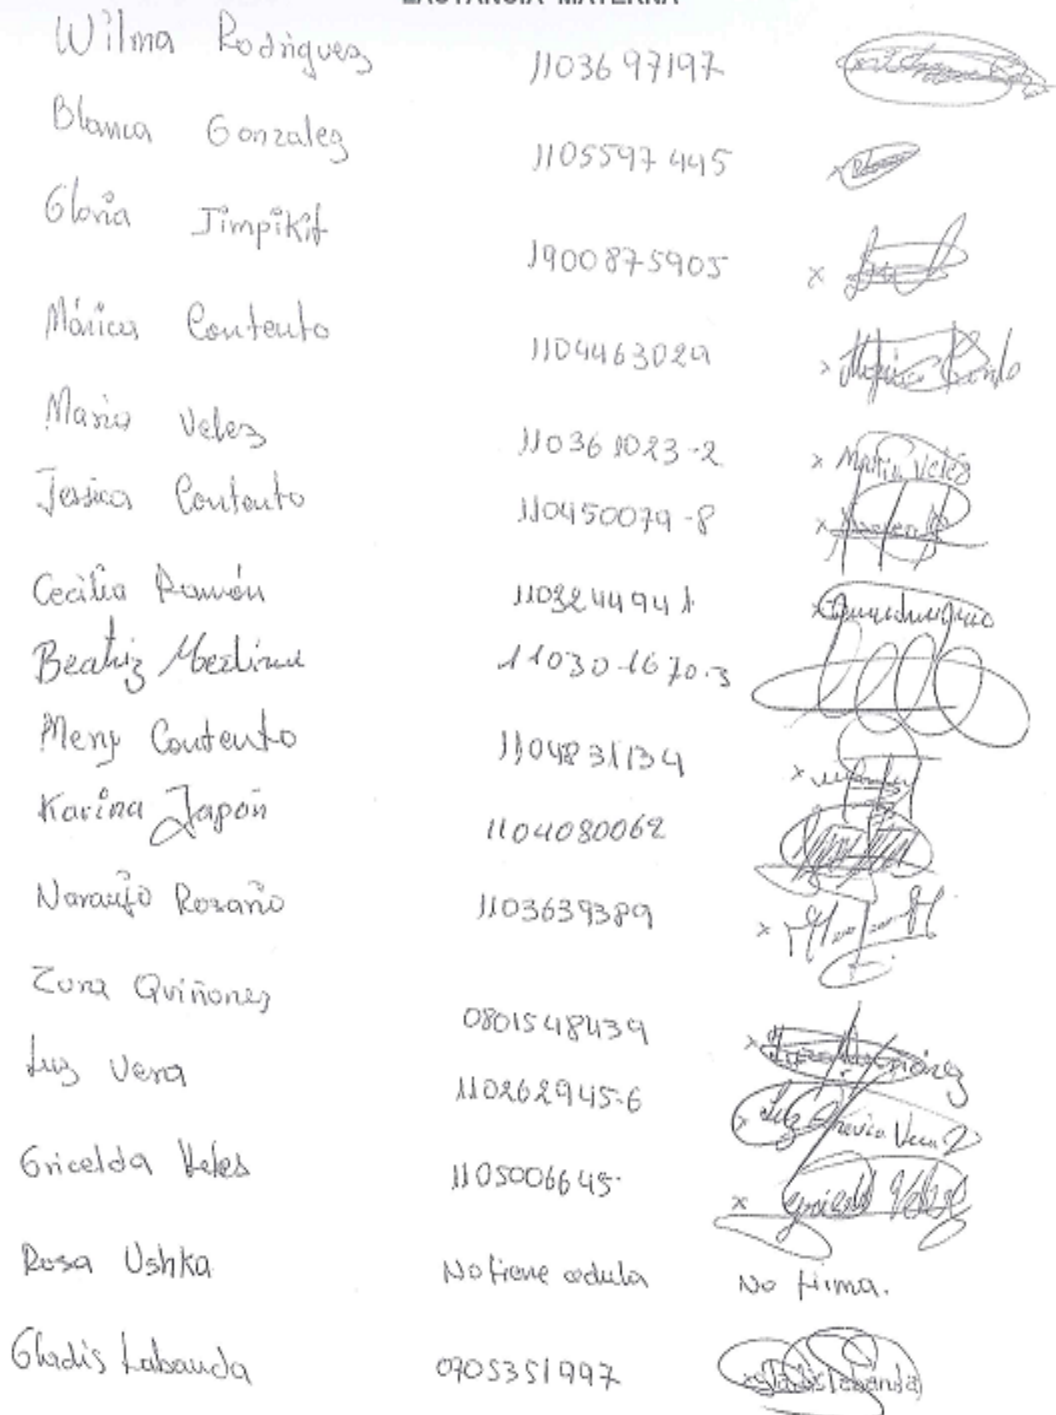 LACTANCIA MATERNA
Wilma Rodriguez 1103697197
Blanca Gonzalez 1105597445
Gloria Jimpikit 1900875905
Mónica Contento 1104463029
Maria Velez 110361023-2 x Maria Veléz
Jessica Contento 110450079-8
Cecilia Ramón 1103244941
Beatriz 110301670-3
Meny Contento 1104831134
Karina Japón 1104080062
Naraujo Rosaño 1103639389
Zora Quiñonez 0801548439
Luz Vera 110262945-6
Gricelda Veles 1105006645
Rosa Ushka No tiene cedula No firma.
Gladis Labanda 0705351997